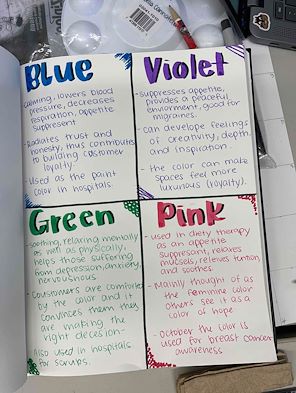 Blue
calming, lowers blood
pressure, decreases
respiration, appetite
suppressent.
Radiates trust and
honesty, thus contributes
to building customer
loyalty.
Used as the paint
color in hospitals.
Violet
-Suppresses appetite,
provides a peaceful
environment, good for
migraines.
-can develop feelings
of creativity, depth
and inspiration.
- the color can make
spaces feel more
luxurious (royalty).
Green
soothing, relaxing mentally
as well as physically,
helps those suffering
from depression, anxiety,
nervousness
coustumers are comforted
by the color and it
convinces them they
are making the
right decesion-
Also used in hospitals
for scrubs.
Pink
- used in diety therapy
as an appetite
suppressant, relaxes
muscels, relieves tention,
and soothes.
- Mainly thought of as
the feminine color
others see it as a
color of hope
- October the color is
used for breast cancer
awareness